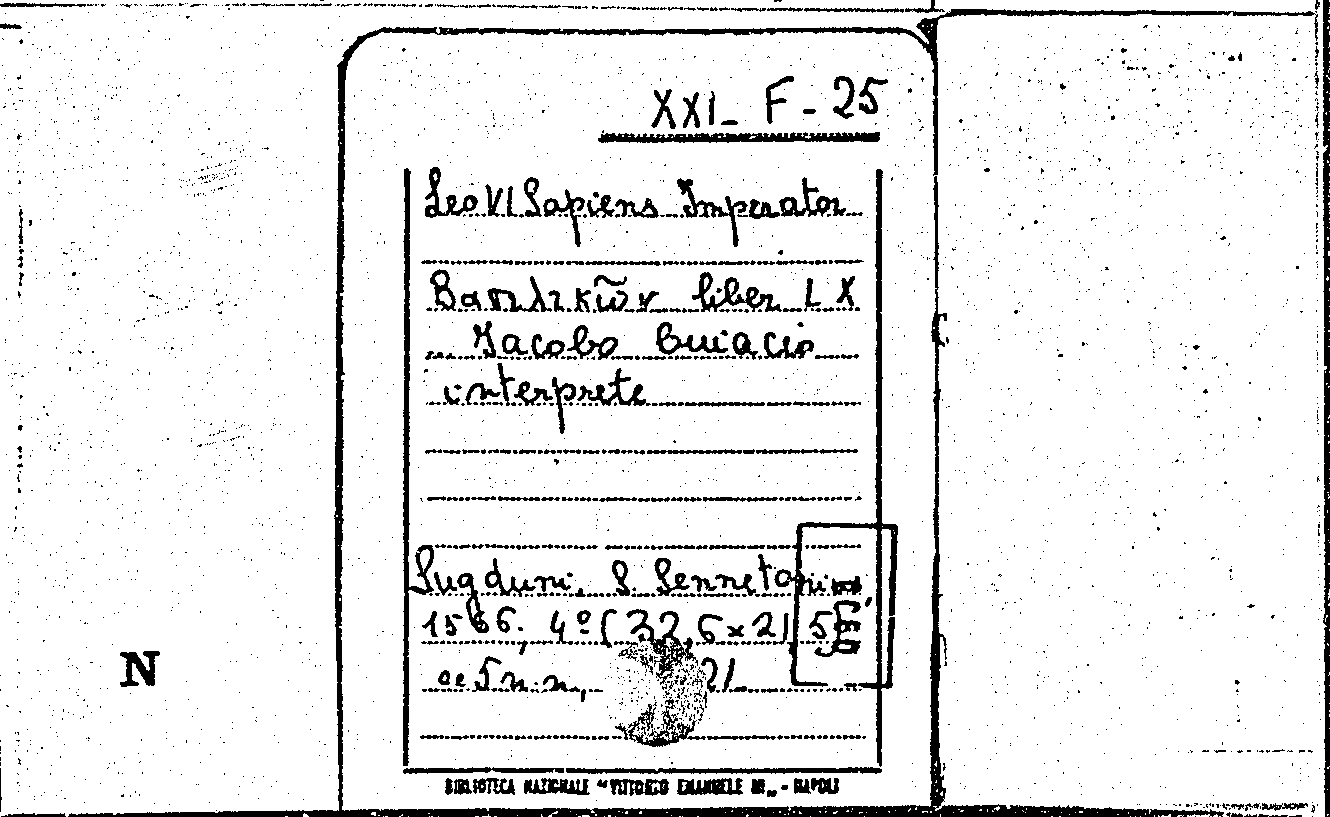 XXI_ F - 25
Leo VI Sapiens Imperator
Βασιλικῶν liber LX
Jacobo Cuiacio
interprete
Lugduni, S. Sennetonium
1566; 4º (32,6x21,5)
cc 5 n.n., 21
N
BIBLIOTECA NAZIONALE "VITTORIO EMANUELE III" - NAPOLI